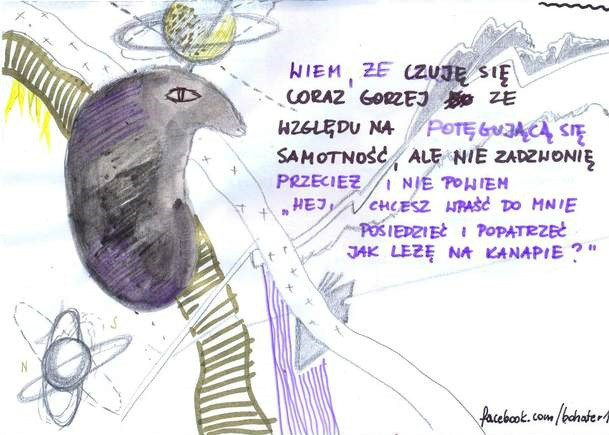 WIEM, ŻE CZUJĘ SIĘ
CORAZ GORZEJ ZE
WZGLĘDU NA POTĘGUJĄCĄ SIĘ
SAMOTNOŚĆ, ALE NIE ZADZWONIĘ
PRZECIEŻ I NIE POWIEM
„HEJ, CHCESZ WPAŚĆ DO MNIE
POSIEDZIEĆ I POPATRZEĆ
JAK LEŻĘ NA KANAPIE?"
N S
facebook.com/bohater